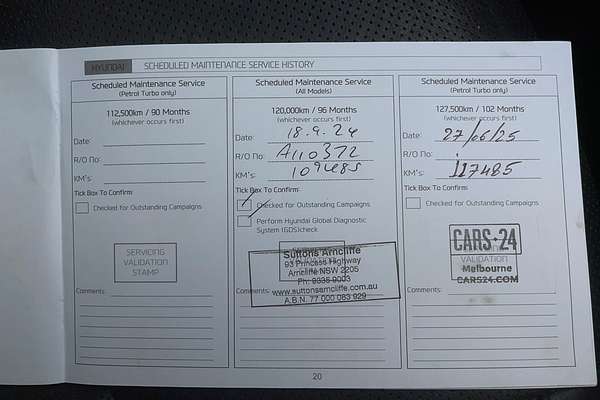 HYUNDAI SCHEDULED MAINTENANCE SERVICE HISTORY
Scheduled Maintenance Service
(Petrol Turbo only)
112,500km / 90 Months
(whichever occurs first)
Date:
R/O No:
KM's:
Tick Box To Confirm:
Checked for Outstanding Campaigns
SERVICING
VALIDATION
STAMP
Comments:
Scheduled Maintenance Service
(All Models)
120,000km / 96 Months
(whichever occurs first)
Date: 18.9.24
R/O No: A110372
KM's: 109485
Tick Box To Confirm:
Checked for Outstanding Campaigns
Perform Hyundai Global Diagnostic
System (GDS)check
Suttons Arncliffe
93 Princess Highway
Arncliffe NSW 2205
Ph: 9335 9003
www.suttonsarncliffe.com.au
A.B.N. 77 000 083 929
Comments:
Scheduled Maintenance Service
(Petrol Turbo only)
127,500km / 102 Months
(whichever occurs first)
Date: 27/06/25
R/O No:
KM's: 117485
Tick Box To Confirm:
Checked for Outstanding Campaigns
CARS24
VALIDATION
Melbourne
CARS24.COM
Comments:
20